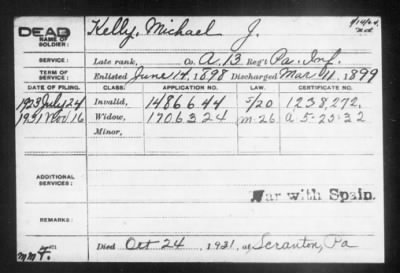 DEAD
NAME OF SOLDIER:
Kelly, Michael J.
SERVICE:
Late rank, Co. A. 13 Reg't Pa. Inf.
TERM OF SERVICE:
Enlisted June 14, 1898 Discharged Mar 11, 1899
DATE OF FILING. CLASS. APPLICATION NO. LAW. CERTIFICATE NO.
1923 July 24 Invalid, 1486644 5/20 1238,272,
1931 Nov 16 Widow, 1706324 m-26 A 5-23-32
Minor,
ADDITIONAL SERVICES:
War with Spain.
REMARKS:
Died Oct 24, 1931, at Scranton, Pa